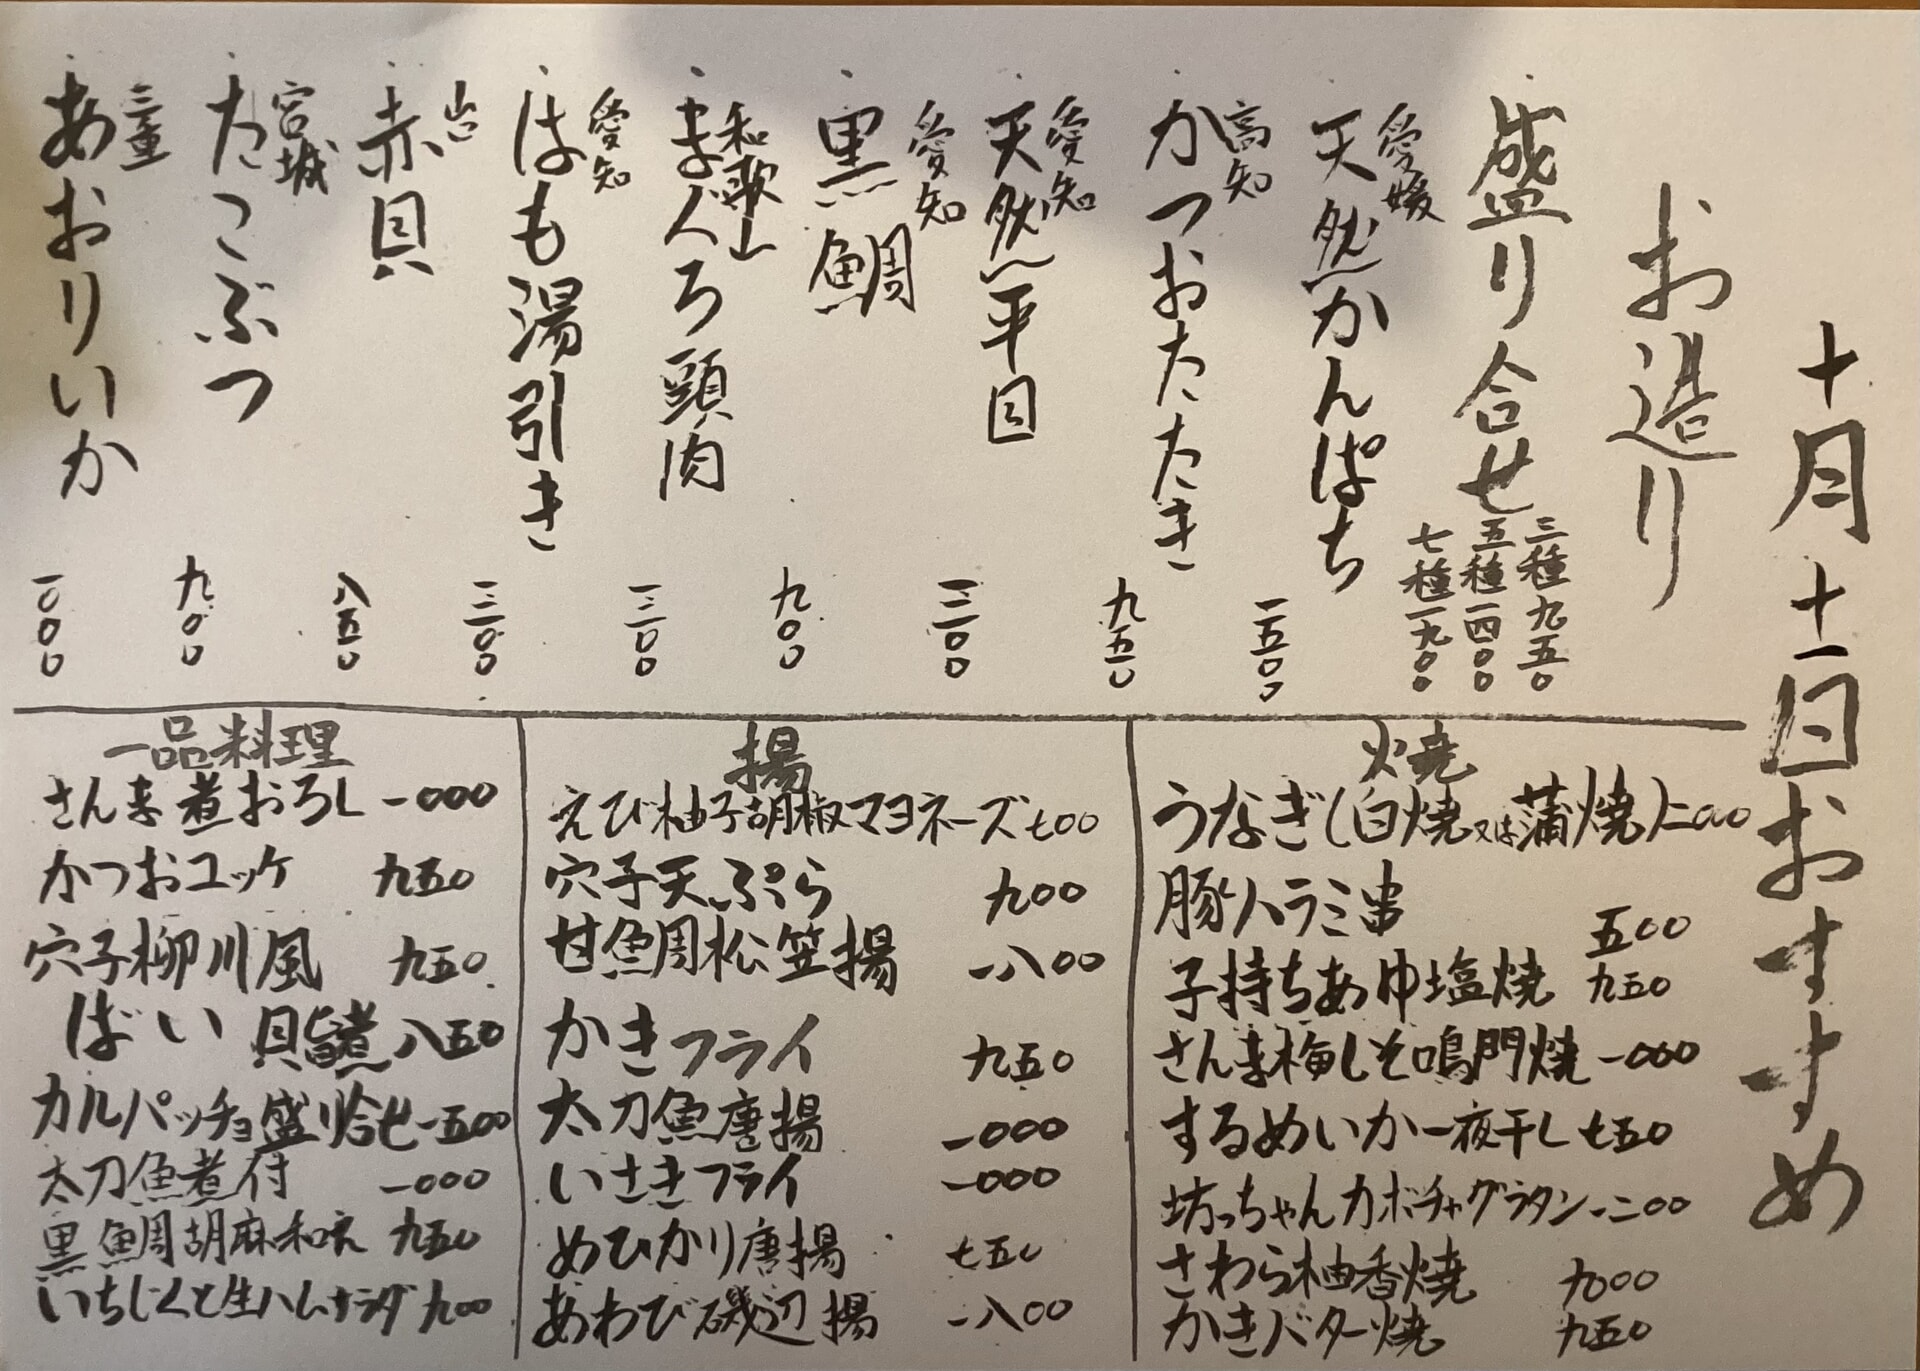 十月十一日おすすめ
お造り
盛り合せ 三種九五〇
五種一四〇〇
七種一九〇〇
愛媛
天然かんぱち 一五〇〇
高知
かつおたたき 九五〇
愛知
天然平目 一三〇〇
愛知
黒鯛 九〇〇
和歌山
まぐろ頭肉 一三〇〇
愛知
はも湯引き 一三〇〇
赤貝 八五〇
宮城
たこぶつ 九〇〇
三重
あおりいか 一〇〇〇
焼
うなぎ(白焼又は蒲焼)二〇〇〇
豚ハラミ串 五〇〇
子持ちあゆ塩焼 九五〇
さんま梅しそ鳴門焼 一〇〇〇
するめいか一夜干し 七五〇
坊っちゃんカボチャグラタン 一二〇〇
さわら柚香焼 九〇〇
かきバター焼 九五〇
揚
えび柚子胡椒マヨネーズ 七〇〇
穴子天ぷら 九〇〇
甘鯛松笠揚 一八〇〇
かきフライ 九五〇
太刀魚唐揚 一〇〇〇
いさきフライ 一〇〇〇
めひかり唐揚 七五〇
あわび磯辺揚 一八〇〇
一品料理
さんま煮おろし 一〇〇〇
かつおユッケ 九五〇
穴子柳川風 九五〇
ばい貝旨煮 八五〇
カルパッチョ盛り合せ 一五〇〇
太刀魚煮付 一〇〇〇
黒鯛胡麻和え 九五〇
いちじくと生ハムサラダ 九〇〇